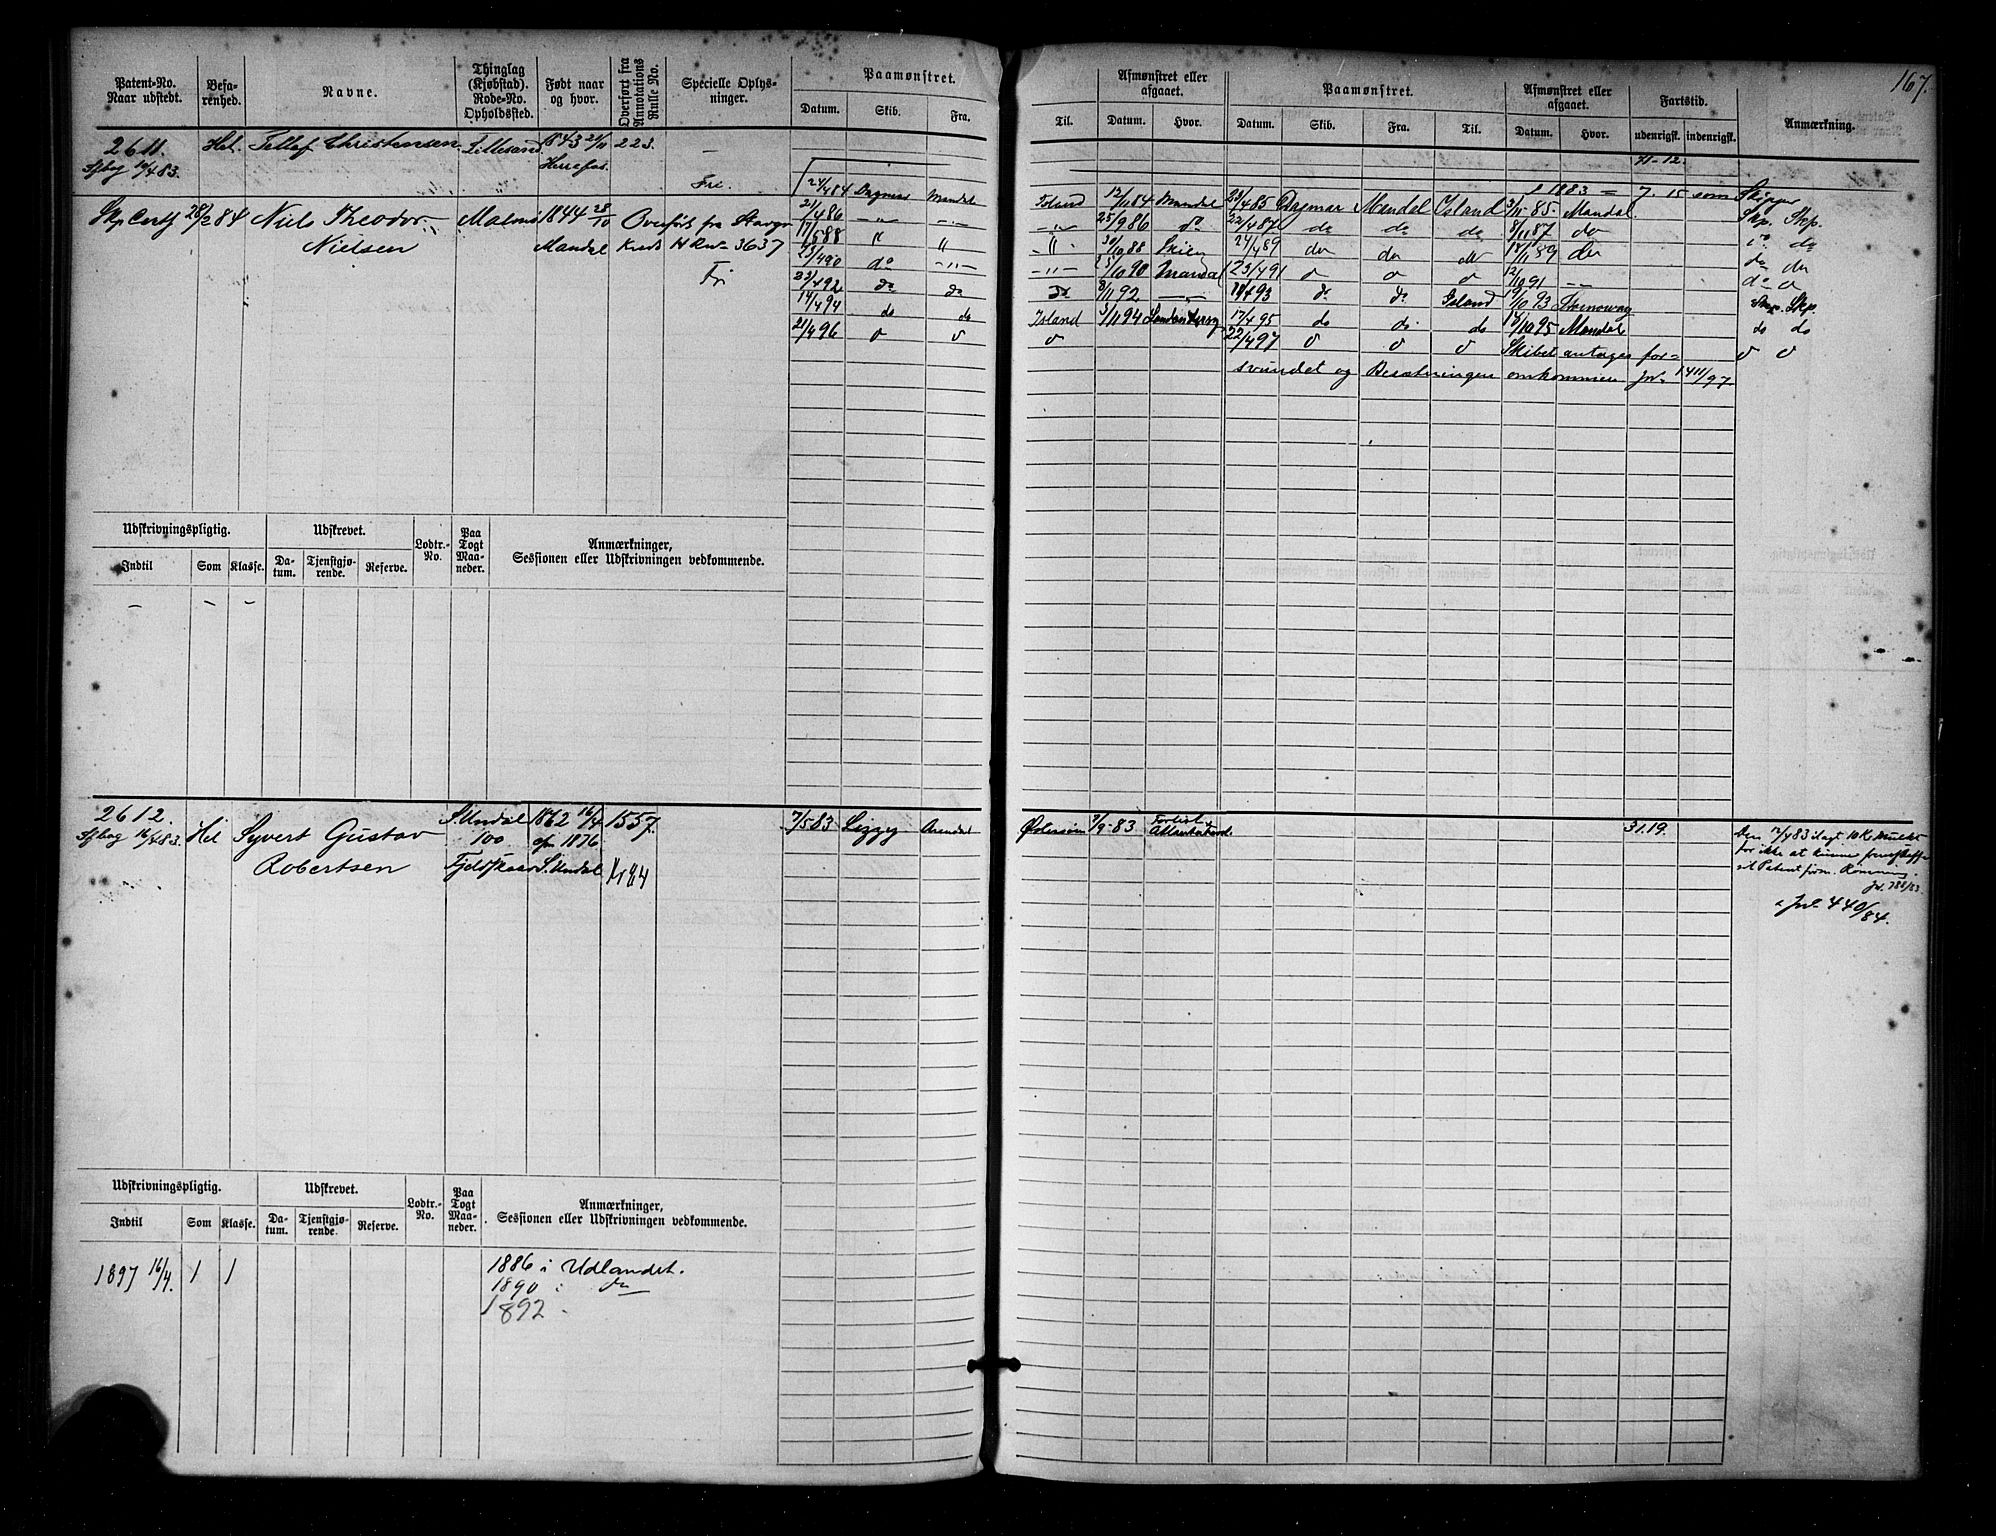 167.
Patent-No. Naar udstedt.
Befarenhed.
Navne.
Thinglag (Kjøbstad). Rode-No. Opholdssted.
Født naar og hvor.
Overført fra Annotations Rulle No.
Specielle Oplysninger.
Paamønstret.
Datum. Skib. Fra.
Til.
Afmønstret eller afgaaet.
Datum. Hvor.
Paamønstret.
Datum. Skib. Fra. Til.
Afmønstret eller afgaaet.
Datum. Hvor.
Fartstid.
udenrigsk. indenrigsk.
Anmærkning.
2611. Hel. Tellef Christensen Lillesand 1843 21/11 223. –
Sfbog 16/4 83. Herrefos.
71-12.
Fri. 24/4 84 Dagmar Mandal Island 12/11 84 Mandal 23/4 85 Dagmar Mandal Island 3/11-85. Mandal.
1883 = 7. 15 som Skipper
Skp Certf 28/2 84 Niels Theodor Malmø 1844 28/10 Overført fra Stavgr
Nielsen Mandal Kreds H Rw 3637
Fri
21/4 86 –"– –"– –"– 25/9 86 do 22/4 87 do do do 8/11 87 do Skp. Skp.
17/5 88 " " –"– 30/10 88 Skien 24/4 89 do do do 18/11 89 do do do
21/4 90 do –"– –"– 25/10 90 Mandal 23/4 91 o o o 12/10 91 –– do do
23/4 92 do do do 8/11 92 –– 28/4 93 do do Island 19/10 93 Stornoway do o
14/4 94 do do Island 3/11 94 17/4 95 do do do 18/10 95 Mandal Skp. Skp.
21/4 96 o o o 22/4 97 o o o Skibet antages for= do do
svundet og Besætningen omkommen Jn. 1411/97. o o
Udskrivningspligtig.
Indtil Som Klasse.
Udskrevet.
Datum. Tjenstgjørende. Reserve.
Lodtr.-No.
Paa Togt Maaneder.
Anmærkninger, Sessionen eller Udskrivningen vedkommende.
– – –
2612. Hel Syvert Gustav S. Undal 1862 16/4 1557.
Sfbog 16/4 83. Robertsen 100 opn 1876
Fjeldskaar S. Undal K 84
7/5-83 Lizzy Arendal Østersøen 7/9-83. Forlist Atlanterhavet
31.19.
Den 12/4 83 ilagt 10 Kr Mulkt
for ikke at kunne fremskaffe
sit Patent
Jn. 788/83.
Jnl. 440/84.
Udskrivningspligtig.
Indtil Som Klasse.
Udskrevet.
Datum. Tjenstgjørende. Reserve.
Lodtr.-No.
Paa Togt Maaneder.
Anmærkninger, Sessionen eller Udskrivningen vedkommende.
1897 16/4. 1 1
1886 i Udlandet.
1890 i do
1892 –